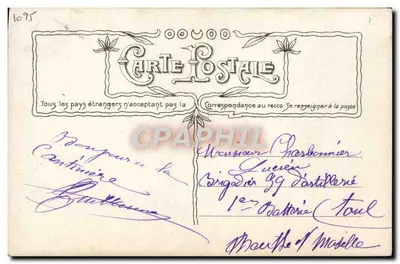 1095
CARTE POSTALE
Tous les pays étrangers n'acceptant pas la Correspondance au recto. Se renseigner à la poste
CPAPHIL
Bonjour à la
Cantinière
Monsieur Charbonnier
Lucien
Brigadier 39 d'artillerie
1er Batterie Toul
Meurthe et Moselle